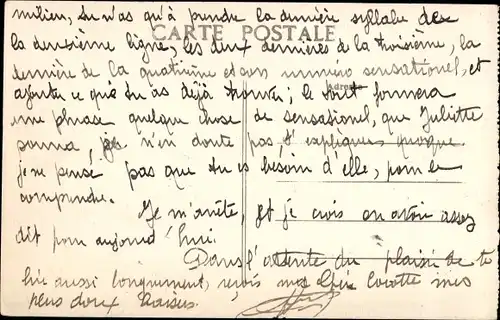 milieu, tu n'as qu'à prendre la dernière syllabe de
CARTE POSTALE
la deuxième ligne, les deux dernières de la troisième, la
dernière de la quatrième et son numéro sensationel, et
Adresse
ajouter ce que tu as déjà trouvé; le tout formera
une phrase quelque chose de sensasionel, que Juliette
pourra, je n'en doute pas t'expliquer quoique
je ne pense pas que tu es besoin d'elle, pour le
comprendre.
Je m'arrête, et je crois en avoir assez
dit pour aujourd'hui.
Dans l'attente du plaisir de te
lire aussi longuement, reçois ma chère cocotte mes
plus doux baisers.